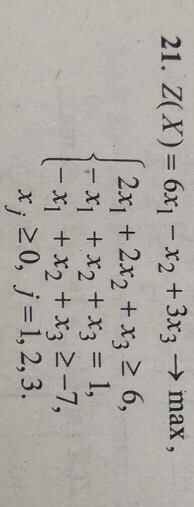 21. Z(X) = 6x₁ − x₂ + 3x₃ → max,
2x₁ + 2x₂ + x₃ ≥ 6,
− x₁ + x₂ + x₃ = 1,
− x₁ + x₂ + x₃ ≥ −7,
xⱼ ≥ 0, j = 1, 2, 3.